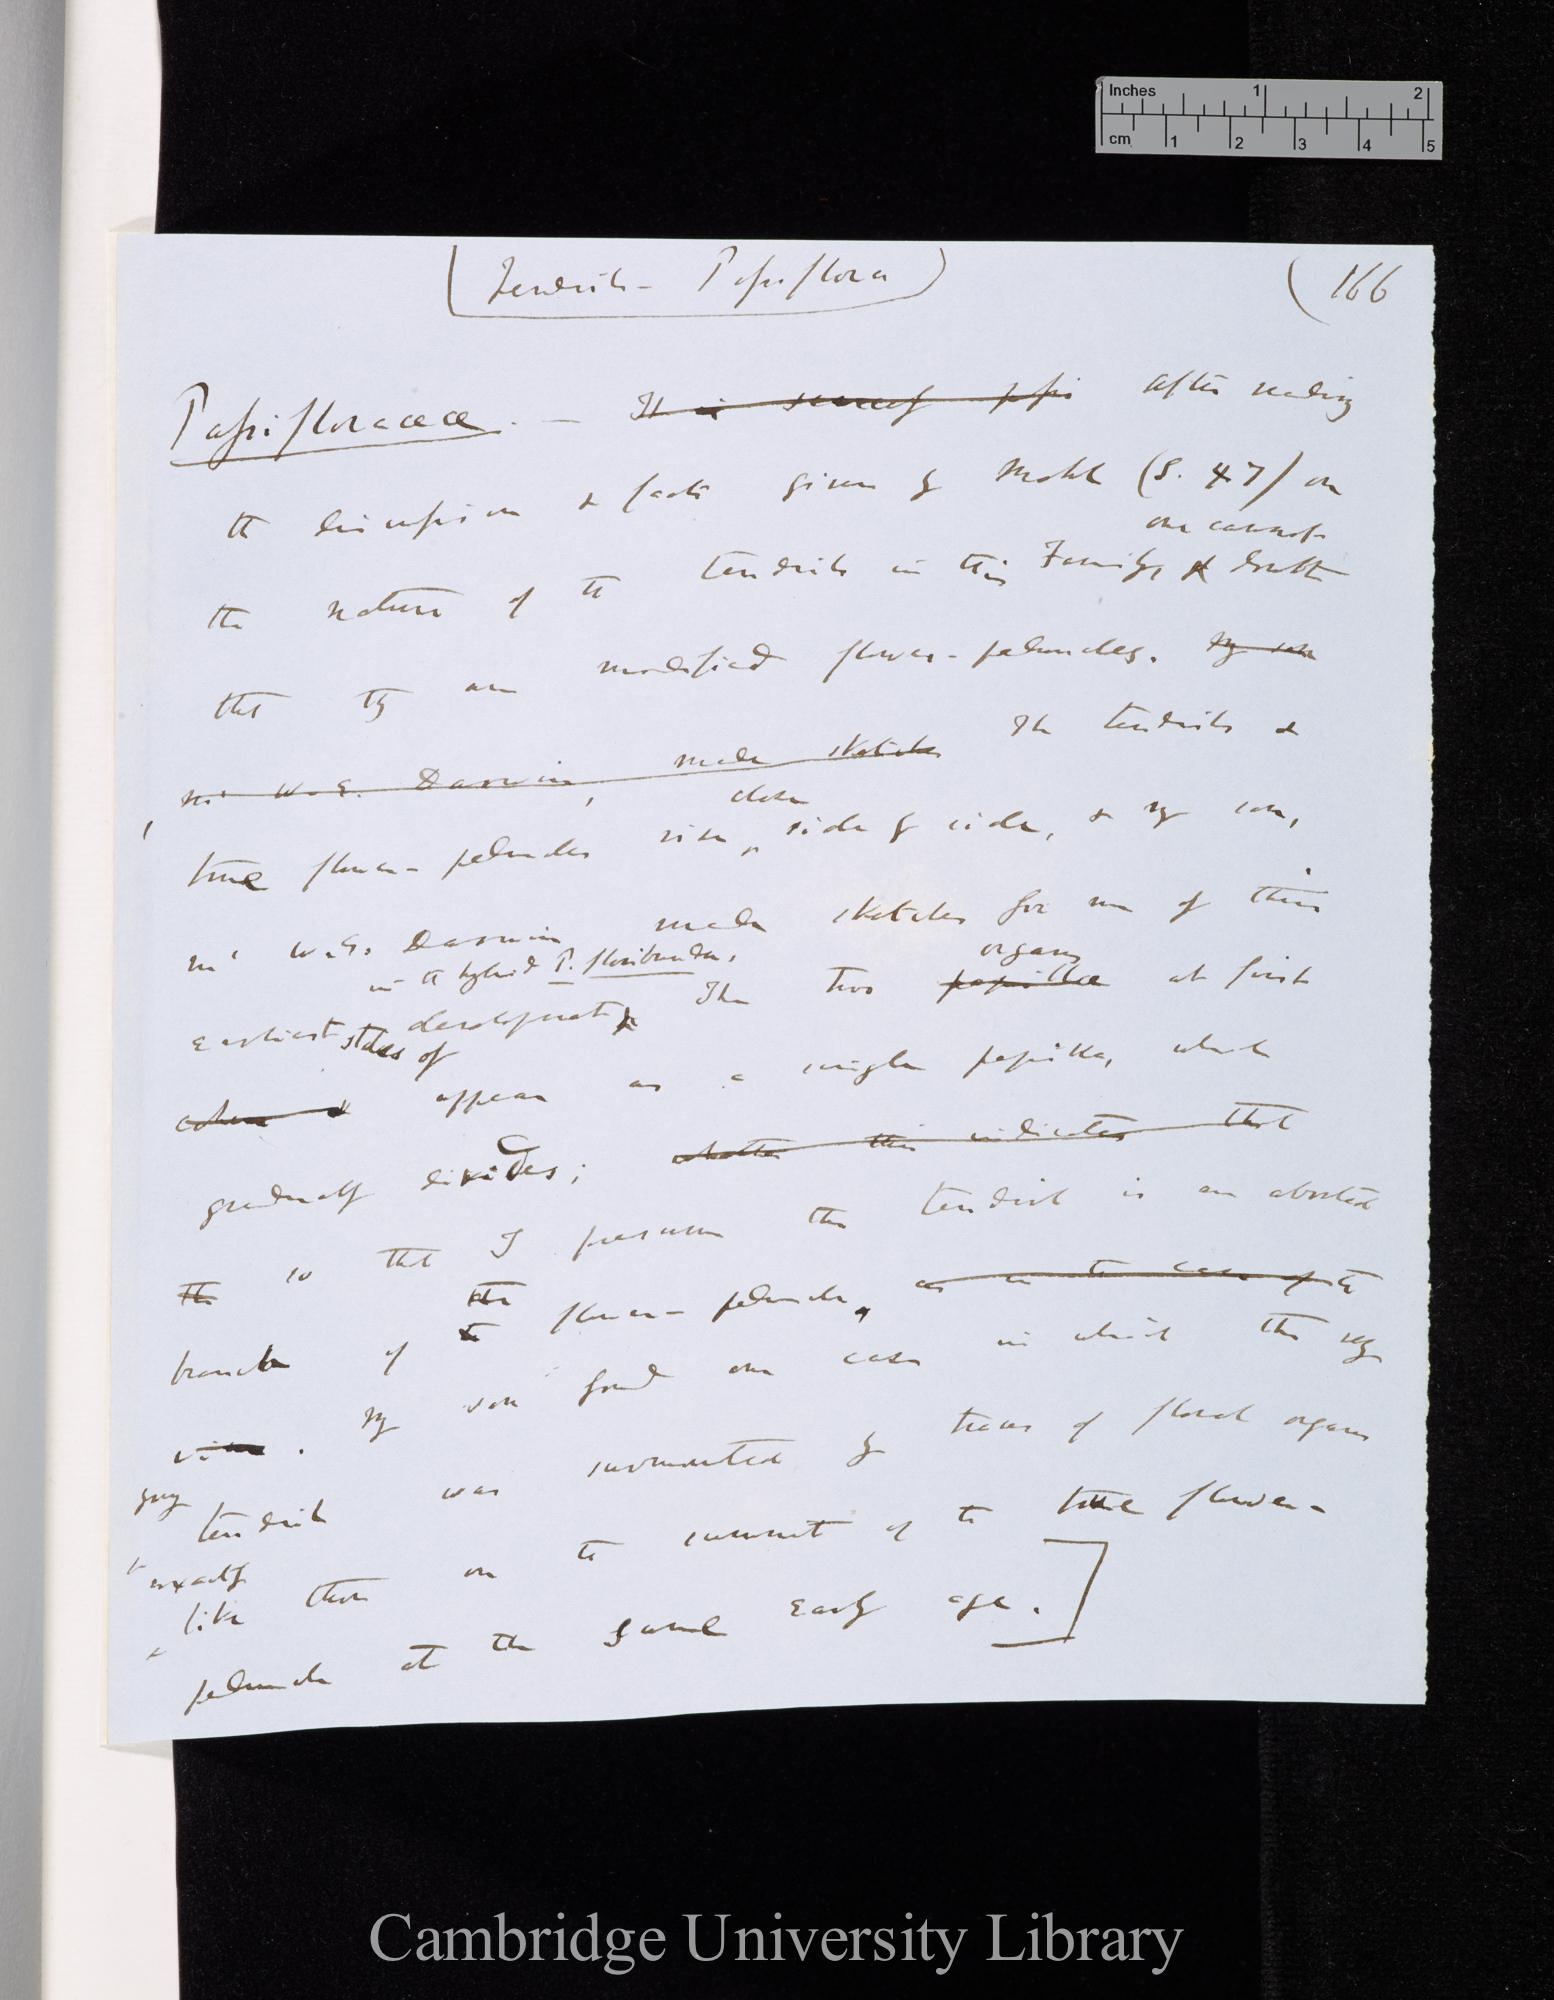 Inches 1 2
cm 1 2 3 4 5
(Tendrils – Passiflora)
(166
Passifloraceæ. — It is scarcely possi After reading
the discussion & facts given by Mohl (S. 47) on
one cannot
the nature of the tendrils in this Family, doubt
that they are modified flower-peduncles. My son
Mr W. E. Darwin, made sketches The tendrils &
close
true flower-peduncles rise side by side, & my son,
Mr W. E. Darwin made sketches for me of their
in the hybrid P. floribunda. organs
earliest development The two papillæ at first
states of
appear as a single papilla, which
gradually divides; whether this indicates that
The so that I presume the tendril is an aborted
the
branch of the flower-peduncle, as in the case of the
vine. My son found one case in which the very
young
tendril was surmounted by traces of floral organs
exactly
like those on the summit of the true flower-
peduncle at the same early age.]
Cambridge University Library